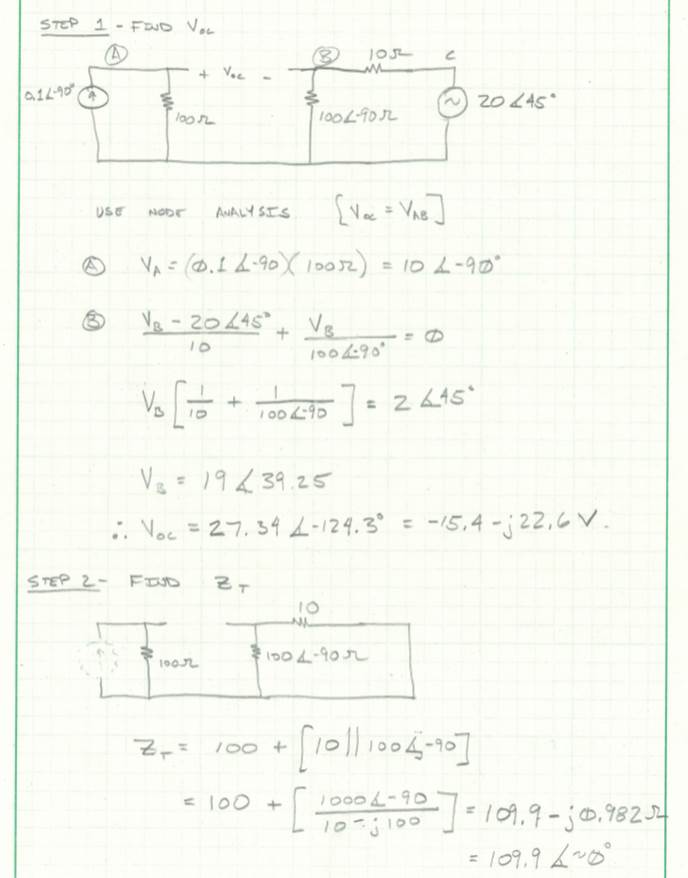 STEP 1 - FIND Voc
A
+ Voc -
B
10Ω
C
0.1∠-90°
100Ω
100∠-90Ω
20∠45°
USE NODE ANALYSIS [Voc = VAB]
A VA = (0.1∠-90)(100Ω) = 10∠-90°
B VB - 20∠45° / 10 + VB / 100∠-90° = 0
VB [1/10 + 1/100∠-90] = 2∠45°
VB = 19∠39.25
∴ Voc = 27.34∠-124.3° = -15.4 - j22.6 V.
STEP 2 - FIND ZT
10
100Ω
100∠-90Ω
ZT = 100 + [10 || 100∠-90]
= 100 + [1000∠-90 / 10 - j100] = 109.9 - j0.982Ω
= 109.9∠~0°